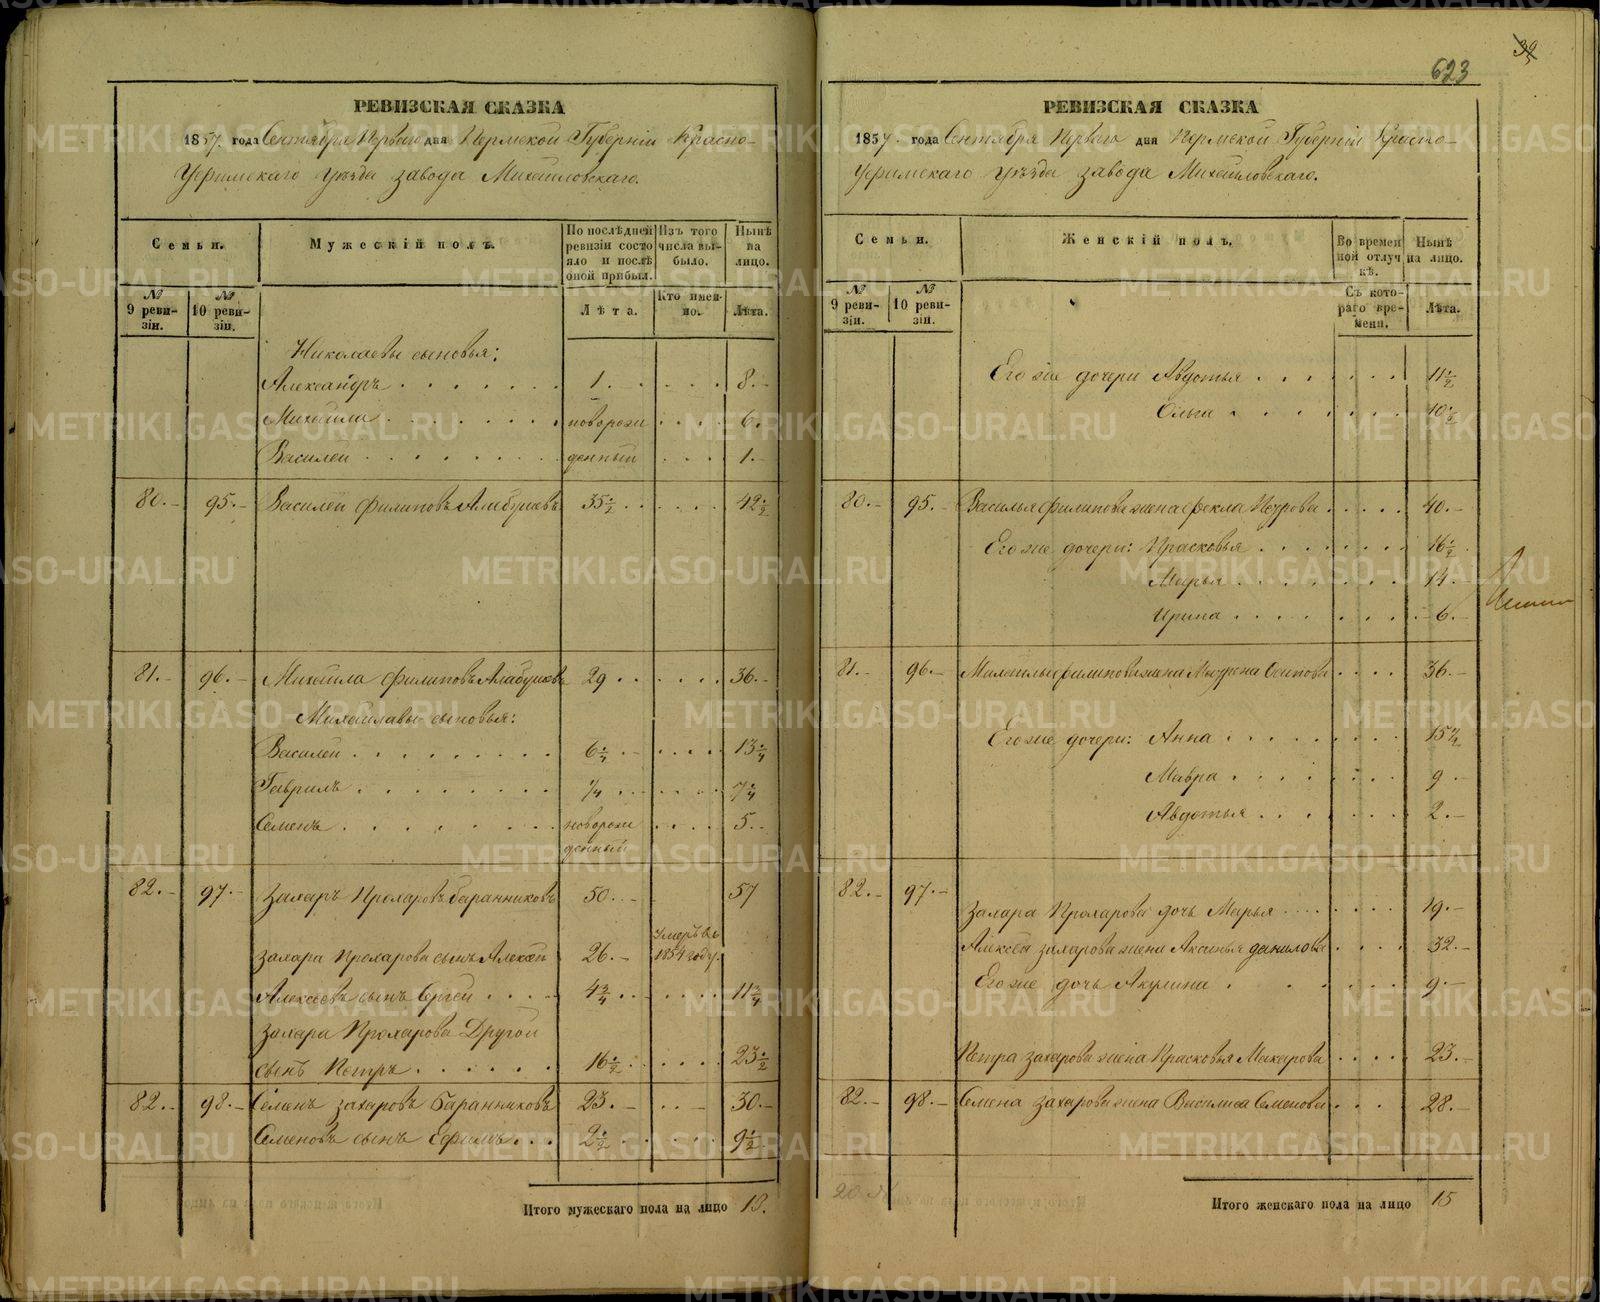 39
623
РЕВИЗСКАЯ СКАЗКА
1857. года Сентября Первого дня Пермской Губерніи Красно-
Уфимскаго уѣзда завода Михайловскаго.
Семьи.
Мужескій полъ.
По послѣдней ревизіи состояло и послѣ оной прибыл.
Изъ того числа выбыло.
Нынѣ на лицо.
№ 9 ревизіи.
№ 10 ревизіи.
Лѣта.
Кто именно.
Лѣта.
Николаевы сыновья:
Александръ 1. 8.
Михайла новорож 6.
Василей денный 1.
80. 95. Василей Филиповъ Алабушевъ 35½ 42½
81. 96. Михайла Филиповъ Алабушевъ 29 36.
Михайлавы сыновья:
Василей 6¼ 13¼
Гаврилъ ¼ 7¼
Семенъ новорож 5.
денный
82. 97. Захаръ Прохаровъ Баранниковъ 50. 57
Умеръ въ
Захара Прохарова сынъ Алексѣй 26. 1854 году.
Алексѣевъ сынъ Сергей 4¾ 11¾
Захара Прохарова Другой
сынъ Петръ 16½ 23½
82. 98. Семенъ Захаровъ Баранниковъ 23. 30.
Семеновъ сынъ Ефимъ 2½ 9½
Итого мужескаго пола на лицо 13.
РЕВИЗСКАЯ СКАЗКА
1857. года Сентября Перваго дня Пермской Губерніи Красно-
Уфимскаго уѣзда завода Михайловскаго.
Семьи.
Женскій полъ.
Во временной отлучкѣ.
Нынѣ на лицо.
№ 9 ревизіи.
№ 10 ревизіи.
Съ котораго времени.
Лѣта.
Его же дочери Авдотья 11½
Ольга 10½
80. 95. Василья Филипова жена Фекла Петрова 40.
Его же дочери: Прасковья 16½
Марья 14.
Ирина 6.
81. 96. Михайлы Филипова жена Матрена Осипова 36.
Его же дочери: Анна 15¾
Мавра 9
Авдотья 2.
82. 97.
Захара Прохарова дочь Марья 19.
Алексѣя Захарова жена Аксинья Данилова 32.
Его же дочь Акулина 9.
Петра Захарова жена Прасковья Макарова 23.
82. 98. Семена Захарова жена Василиса Семенова 28.
Итого женскаго пола на лицо 15
METRIKI.GASO-URAL.RU